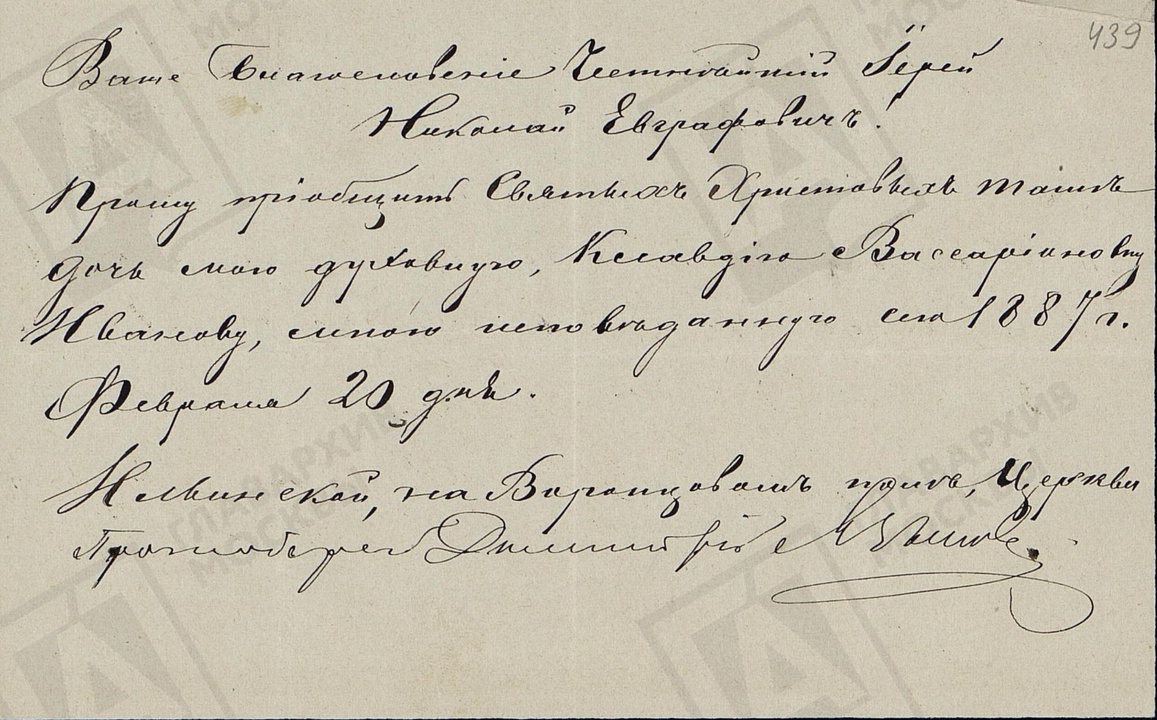 439
Ваше Благословеніе Честнѣйшій Іерей
Николай Евграфовичъ!
Прошу пріобщить Святыхъ Христовыхъ Таинъ
дочь мою духовную, Клавдію Вассаріоновну
Иванову, мною исповѣданную сего 1887 г.
Февраля 20 дня.
Ильинской, на Воронцовомъ полѣ, Церкви
Протоіерей Димитрій
ГЛАВАРХИВ
МОСКВЫ
ГЛАВАРХИВ
МОСКВЫ